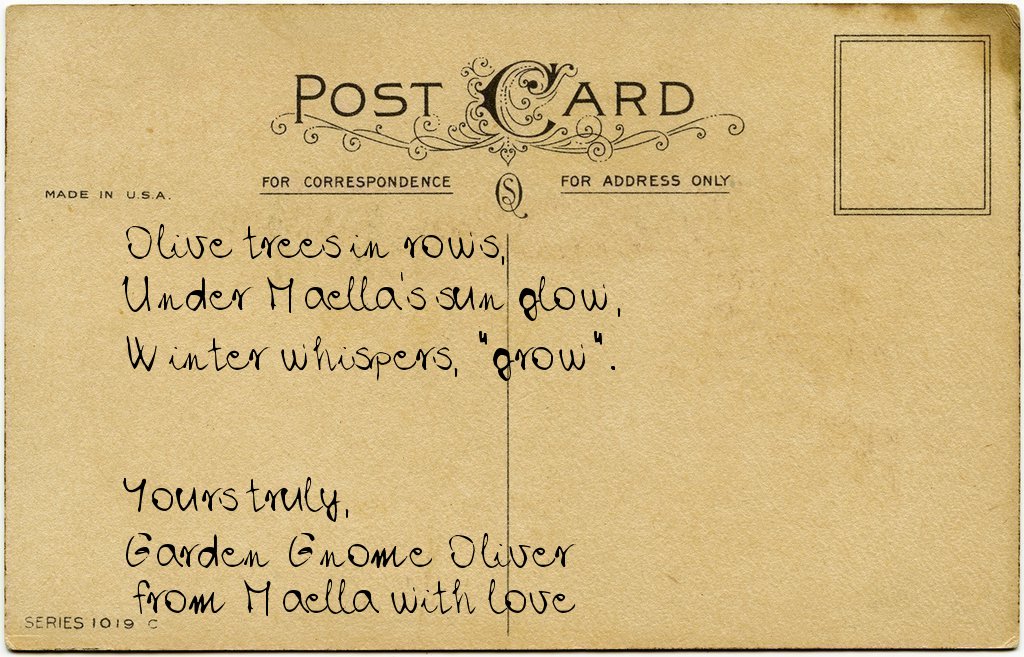 POST CARD
FOR CORRESPONDENCE
FOR ADDRESS ONLY
MADE IN U.S.A.
Olive trees in rows,
Under Maella's sun glow,
Winter whispers, "grow".
Yours truly,
Garden Gnome Oliver
from Maella with love
SERIES 1019 C